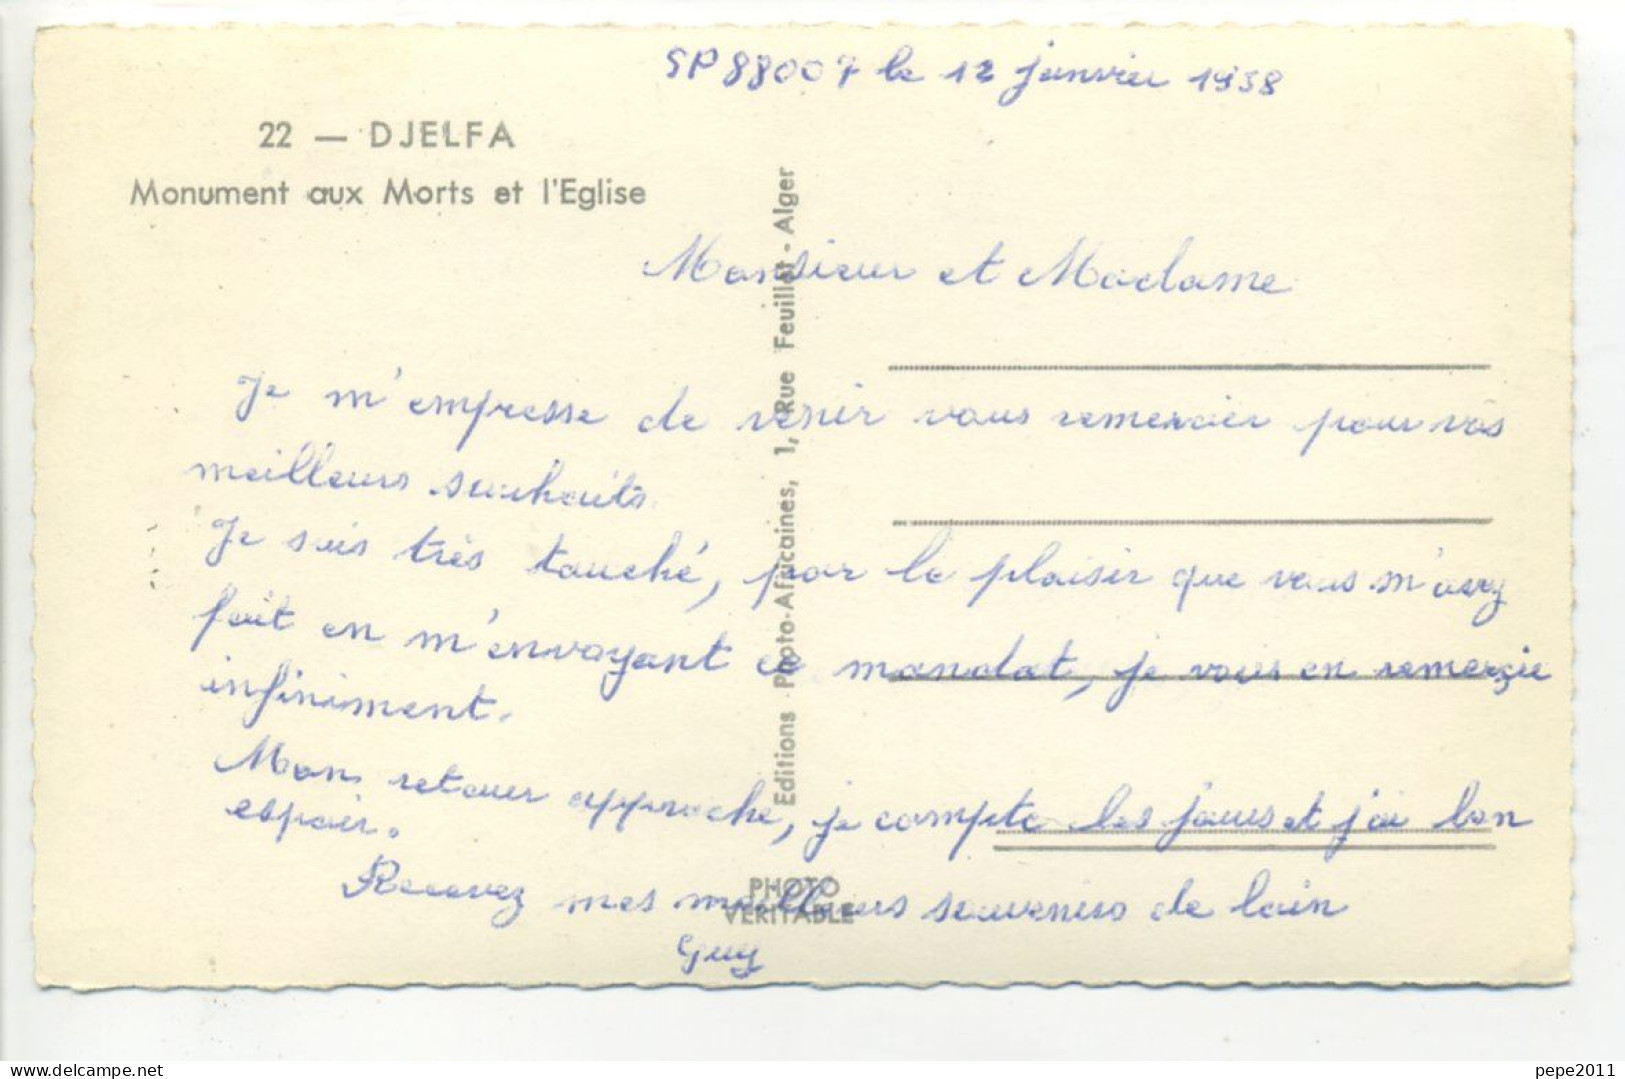 SP 88007 le 12 janvier 1958
22 — DJELFA
Monument aux Morts et l'Eglise
Monsieur et Madame
Je m'empresse de venir vous remercier pour vos
meilleurs souhaits.
Je suis très touché, par le plaisir que vous m'avez
fait en m'envoyant ce mandat, je vous en remerçie
infiniment.
Mon retour approche, je compte les jours et j'ai bon
espoir.
Recevez mes meilleurs souvenirs de loin
Guy
Editions Photo-Africaines, 1, Rue Feuillet - Alger
PHOTO
VERITABLE
www.delcampe.net
pepe2011